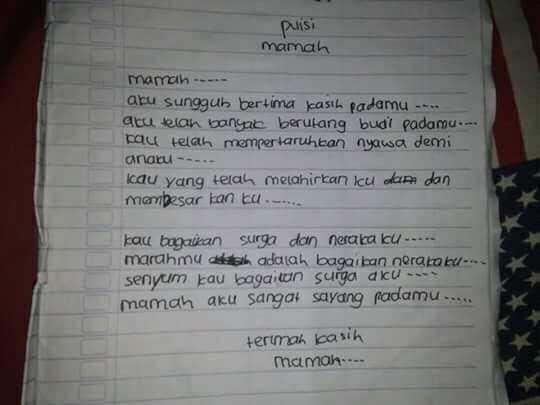 puisi
mamah
mamah -----
aku sungguh bertima kasih padamu ----
aku telah banyak berutang budi padamu----
kau telah mempertaruhkan nyawa demi
anaku -----
kau yang telah melahirkan ku dan
membesar kan ku.------
kau bagaikan surga dan neraka ku -----
marahmu adalah bagaikan nerakaku----
senyum kau bagaikan surga aku ----
mamah aku sangat sayang padamu .....
terimah kasih
mamah----